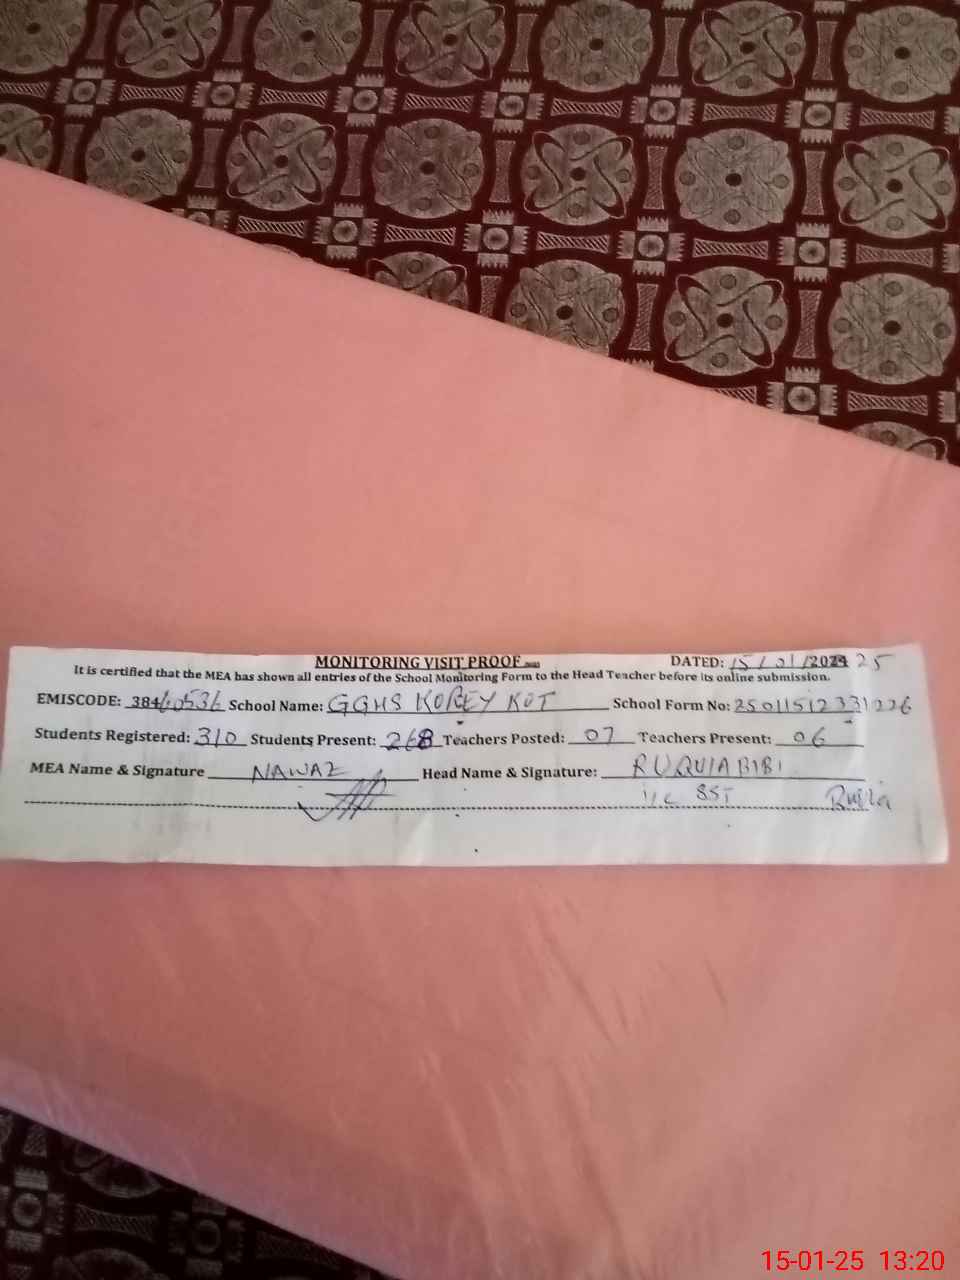 MONITORING VISIT PROOF DATED: 15/01/2024 25
It is certified that the MEA has shown all entries of the School Monitoring Form to the Head Teacher before its online submission.
EMISCODE: 38460536 School Name: GGHS KOREY KOT School Form No: 25011512331226
Students Registered: 310 Students Present: 268 Teachers Posted: 07 Teachers Present: 06
MEA Name & Signature NAWAZ Head Name & Signature: RUQUIABIBI
i/c SST
15-01-25 13:20